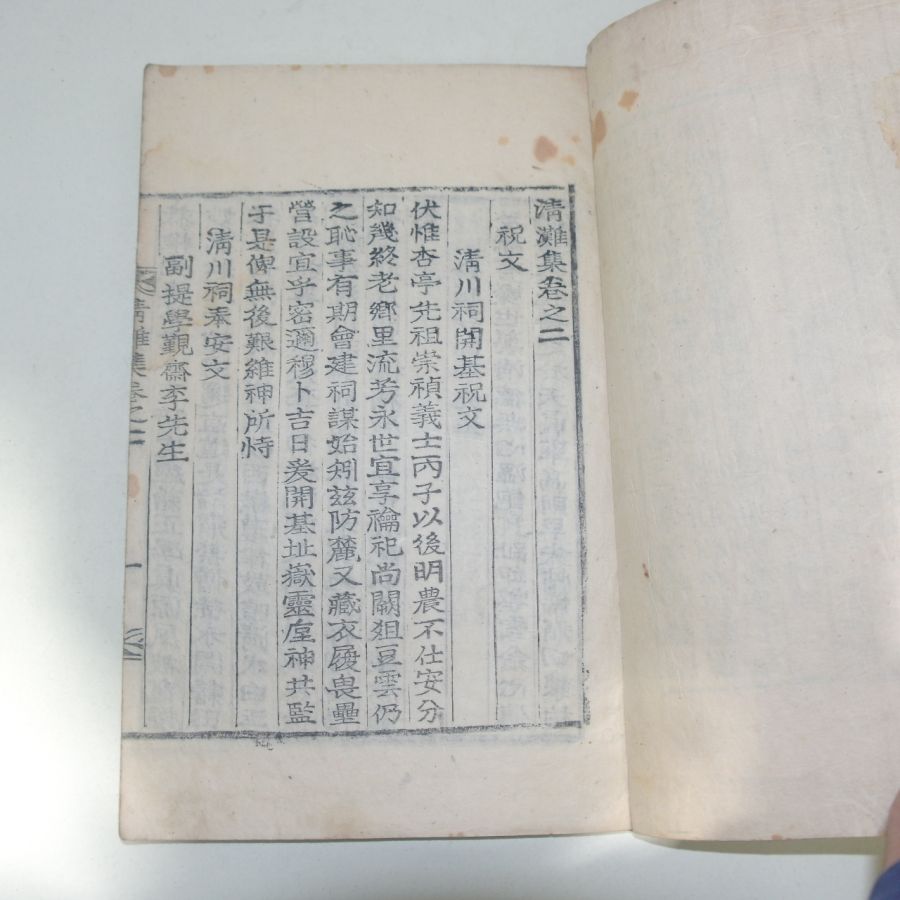 清灘集卷之二
祝文
清川祠開基祝文
伏惟杏亭先祖崇禎義士丙子以後明農不仕安分
知幾終老鄉里流芳永世宜享禴祀尚闕俎豆雲仍
之恥事有期會建祠謀始矧玆防麓又藏衣履畏壘
營設宜乎密邇穆卜吉日爰開基址嶽靈庢神共監
于是俾無後艱維神所恃
清川祠奉安文
副提學觀齋李先生
清灘集卷之二
一